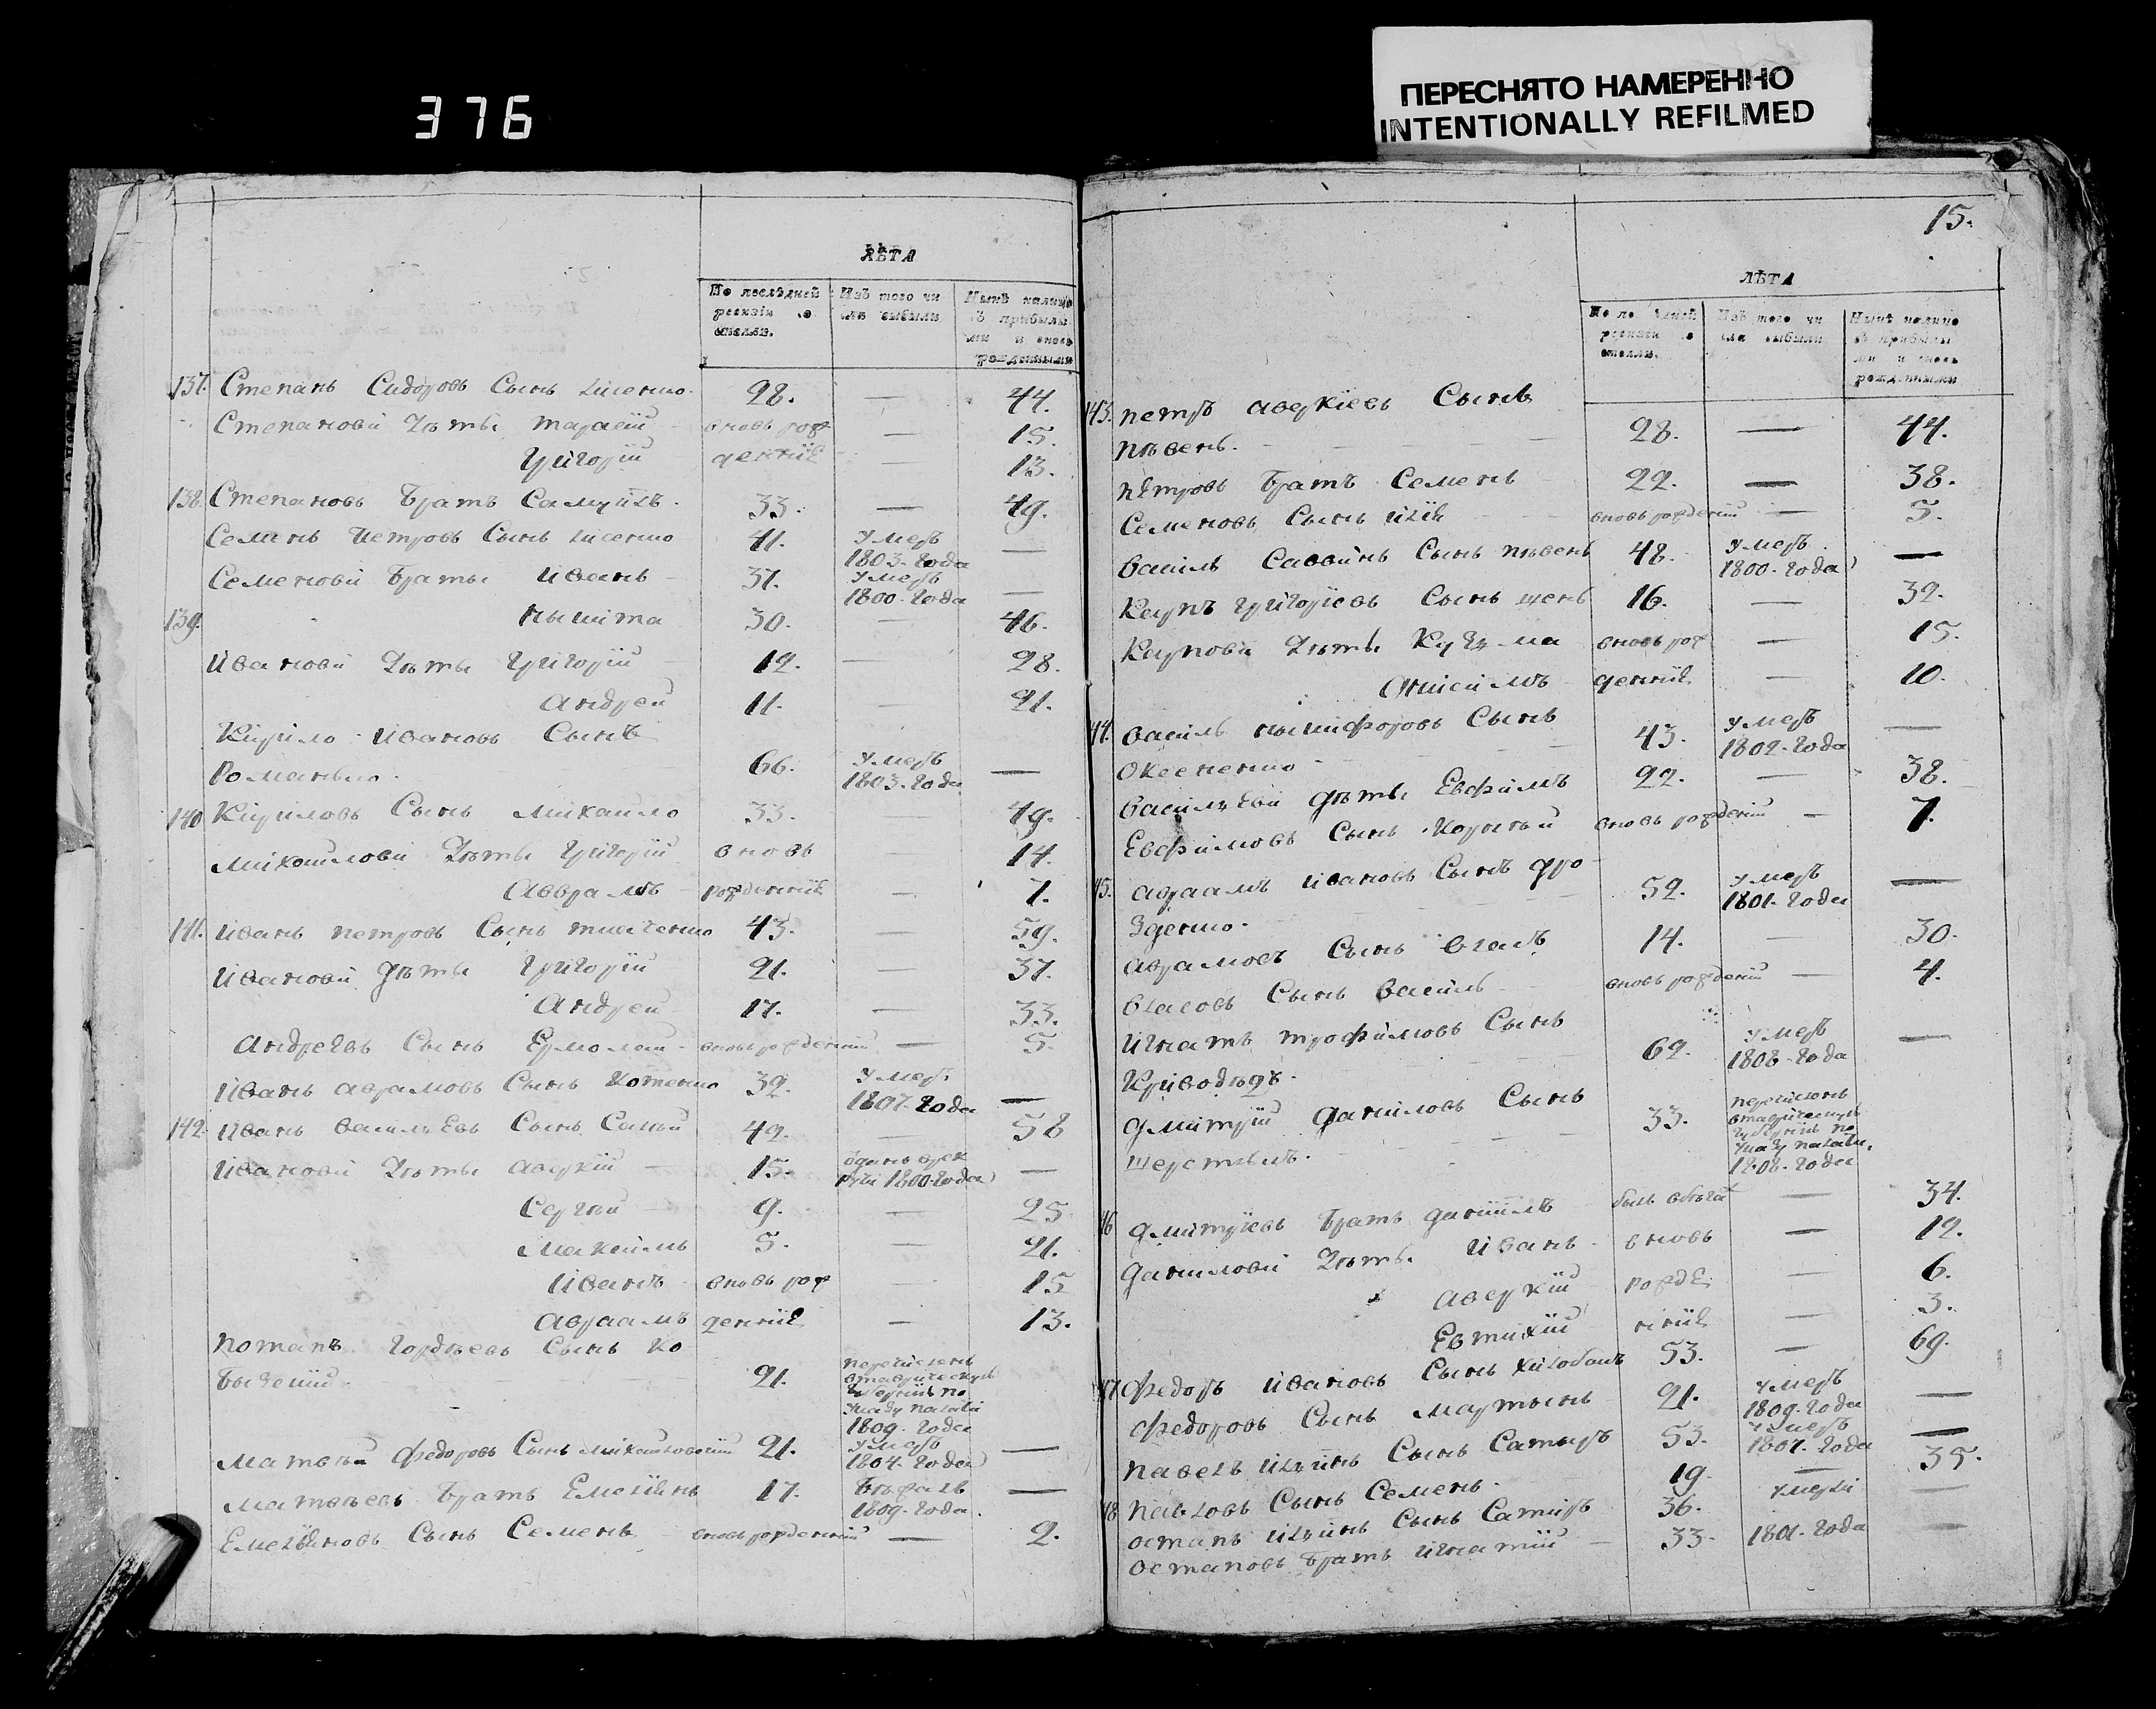 376
ПЕРЕСНЯТО НАМЕРЕННО
INTENTIONALLY REFILMED
ЛѢТА
По послѣдней ревизіи состояло. Изъ того числа выбыли Нынѣ налицо съ прибылыми и вновь рожденными
137. Степанъ Сидоровъ Сынъ 28. — 44.
Степановы Дѣты Тарасій вновь рож — 15.
Григорій денніе — 13.
138. Степановъ Братъ Самуилъ. 33. — 49.
Семенъ Петровъ Сынъ 41. умеръ 1803. года —
Семеновы Браты Иванъ 37. умеръ 1800. года —
139. Никита 30. — 46.
Ивановы Дѣты Григорій 12. — 28.
Андрей 11. — 21.
Кирило Ивановъ Сынъ
Романько. 66. умеръ 1803. года —
140 Кириловъ Сынъ Михайло 33. — 49.
Михайловы Дѣты Григорій вновь 14.
Авврамъ рожденніе — 7.
141. Иванъ Петровъ Сынъ 43. — 59.
Ивановы дѣты Григорій 21. — 37.
Андрей 17. — 33.
Андреевъ Сынъ Ермолай вновь рожденній — 5.
Иванъ Аврамовъ Сынъ Котенко 32. умеръ 1807. года —
142. Иванъ Васильевъ Сынъ 42. — 58
Ивановы Дѣты Аверкій 15. 1800. года —
Сергѣй 9. — 25
Максимъ 5. — 21.
Иванъ вновь рож — 15
Авраамъ денніе — 13.
Потапъ Гордѣевъ Сынъ Ко
21. перечисленъ въ таврическую губернію по указу палаты 1809. года
Матвѣй Федоровъ Сынъ Михайловскій 21. умеръ 1804. года —
Матвѣевъ Братъ Емеліянъ 17. Бѣжалъ 1809. года. —
Емеліяновъ Сынъ Семенъ вновь рожденній — 2.
15.
ЛѢТА
По послѣдней ревизіи состояло. Изъ того числа выбыли Нынѣ налицо съ прибылыми и вновь рожденными
143. Петръ Аверкіевъ Сынъ
Пѣвень. 28. — 44.
Петровъ Братъ Семенъ 22. — 38.
Семеновъ Сынъ Илія вновь рожденій — 5.
Василь Саввинъ Сынъ Пѣвень 48. умеръ 1800. года —
Карпъ Григоріевъ Сынъ 16. — 32.
Карповы Дѣты Кузьма вновь рож — 15.
Онисимъ денніе — 10.
44. Василь Никифоровъ Сынъ
Оксененко 43. умеръ 1802. года —
Васильевы дѣты Евфимъ 22. — 38.
Евфимовъ Сынъ Корнѣй вновь рожденій — 7.
45. Авраамъ Ивановъ Сынъ Дро
зденко. 52. умеръ 1801. года —
Аврамовъ Сынъ Власъ 14. — 30.
Власовъ Сынъ Василь вновь рожденій — 4.
Игнатъ Трофимовъ Сынъ
Криводѣдъ. 62. умеръ 1808. года —
Дмитрій Даниловъ Сынъ
33. перечисленъ въ таврическую губернію по указу палаты. 1808. года
46 Дмитріевъ Братъ Даніилъ былъ въ бѣгах — 34.
Даниловы Дѣты. Иванъ вновь — 12.
Аверкій рожде — 6.
Евтихій нніе — 3.
47 Федоръ Ивановъ Сынъ Хлѣбанъ 53. — 69.
Федоровъ Сынъ Мартынъ 21. умеръ 1809. года —
Павелъ Ильинъ Сынъ Сатыръ 53. умеръ 1807. года —
48 Павловъ Сынъ Семенъ. 19. — 35.
Остапъ Ильинъ Сынъ Сатиръ 36. умерли —
Остаповъ Братъ Игнатій 33. 1801. года —